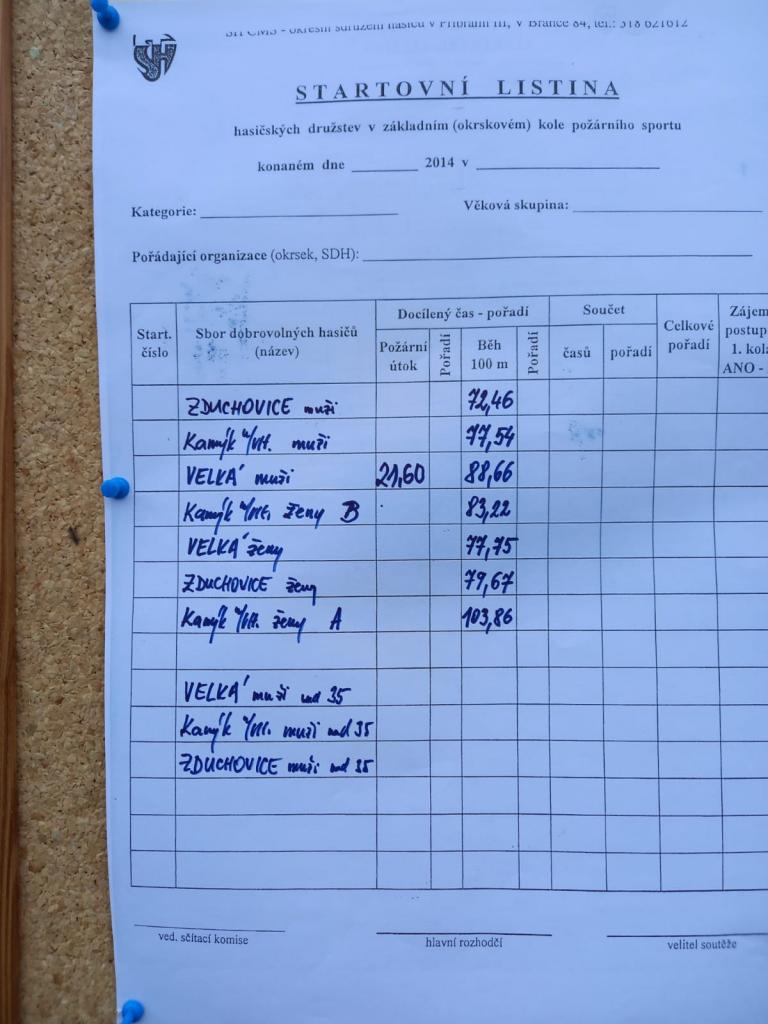 SH ČMS - okresní sdružení hasičů v Příbrami III, V Brance 84, tel.: 318 621612
SH
STARTOVNÍ LISTINA
hasičských družstev v základním (okrskovém) kole požárního sportu
konaném dne ________ 2014 v ________
Kategorie: ________ Věková skupina: ________
Pořádající organizace (okrsek, SDH): ________
Start. číslo Sbor dobrovolných hasičů (název) Docílený čas - pořadí Součet Celkové pořadí Zájem postup 1. kola ANO -
Požární útok Pořadí Běh 100 m Pořadí časů pořadí
ZDUCHOVICE muži 72,46
Kamýk n/Vlt. muži 77,54
VELKÁ muži 21,60 88,66
Kamýk n/Vlt. ženy B 83,22
VELKÁ ženy 77,75
ZDUCHOVICE ženy 79,67
Kamýk n/Vlt. ženy A 103,86
VELKÁ muži nad 35
Kamýk n/Vlt. muži nad 35
ZDUCHOVICE muži nad 35
ved. sčítací komise hlavní rozhodčí velitel soutěže